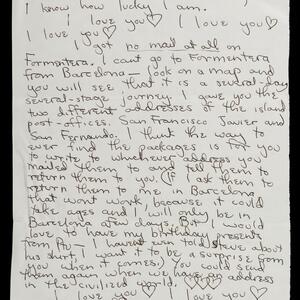 I know how lucky I am.
I love you♡
I love you♡ I love you♡
I got no mail at all on
Formentera. I cant go to Formentera
from Barcelona — look on a map and
you will see that it is a several-day
several-stage journey. I gave you the
two different addresses of the island
post-offices. San Francisco Javier and
San Fernando. I think the way to
ever find the packages is for you
to write to whichever address you
mailed them to and tell them to
return them to you. If I ask them to
return them to me in Barcelona
that wont work, because it could
take ages and I will only be in
Barcelona a few days. But I would
love to have my birthday presents
from you — I havent even told Steve about
his shirt, I want it to be a surprise from
you when it comes. You could send
them again when we have an address
in the civilized world. ♡♡♡
I love you♡ I love you♡